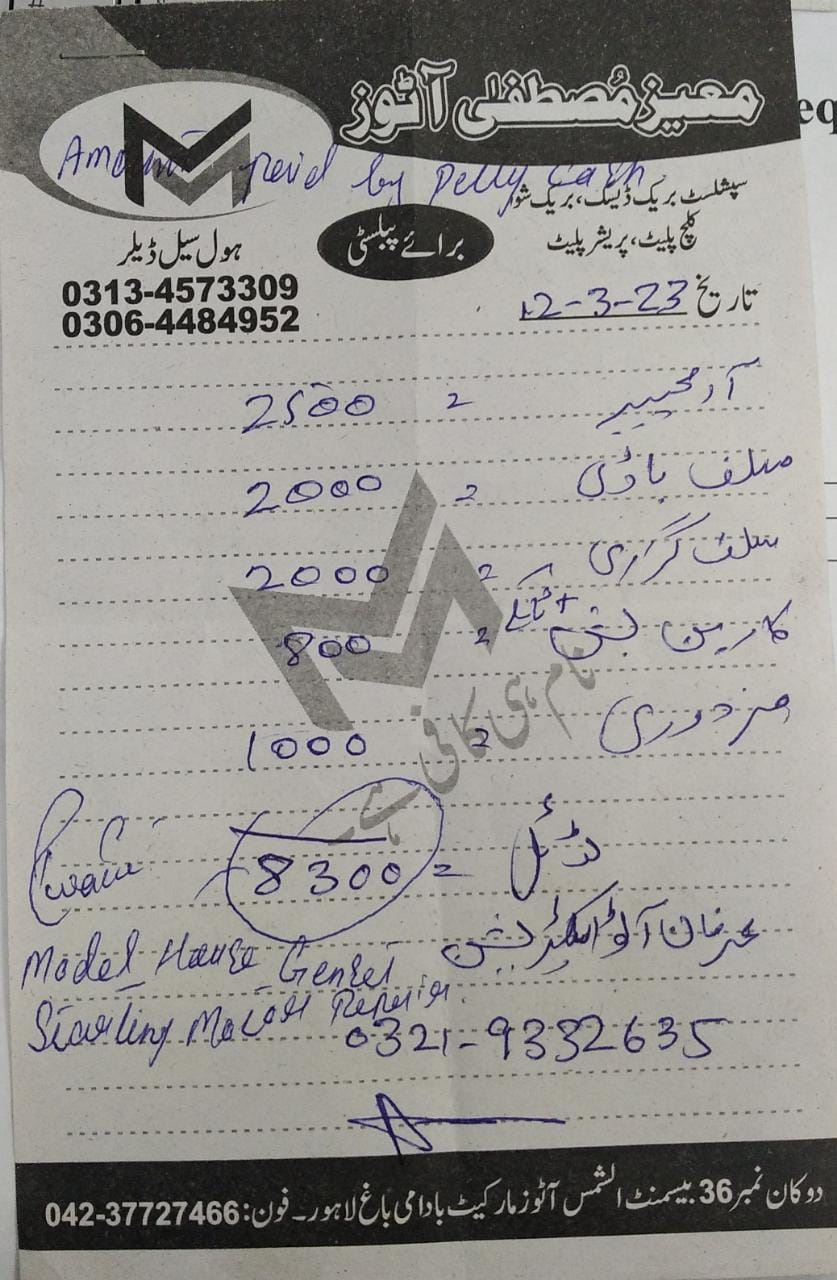 معیز مُصطفٰی آٹوز
Amount paid by Petty Cash
سپشلسٹ بریک ڈیسک، بریک شو
کلچ پلیٹ، پریشر پلیٹ
برائے پبلسٹی
ہول سیل ڈیلر
0313-4573309
0306-4484952
تاریخ 12-3-23
آرمیچر = 2500
سلف باڈی = 2000
سلف گراری = 2000
کاربن بش + = 800
مزدوری = 1000
نام ہی کافی ہے
ٹوٹل = 8300
عرفان آٹو الیکٹریشن
Model House Genset
Starting Motor Repair.
0321-9332635
دوکان نمبر 36 بیسمنٹ الشمس آٹوز مارکیٹ بادامی باغ لاہور۔ فون: 042-37727466